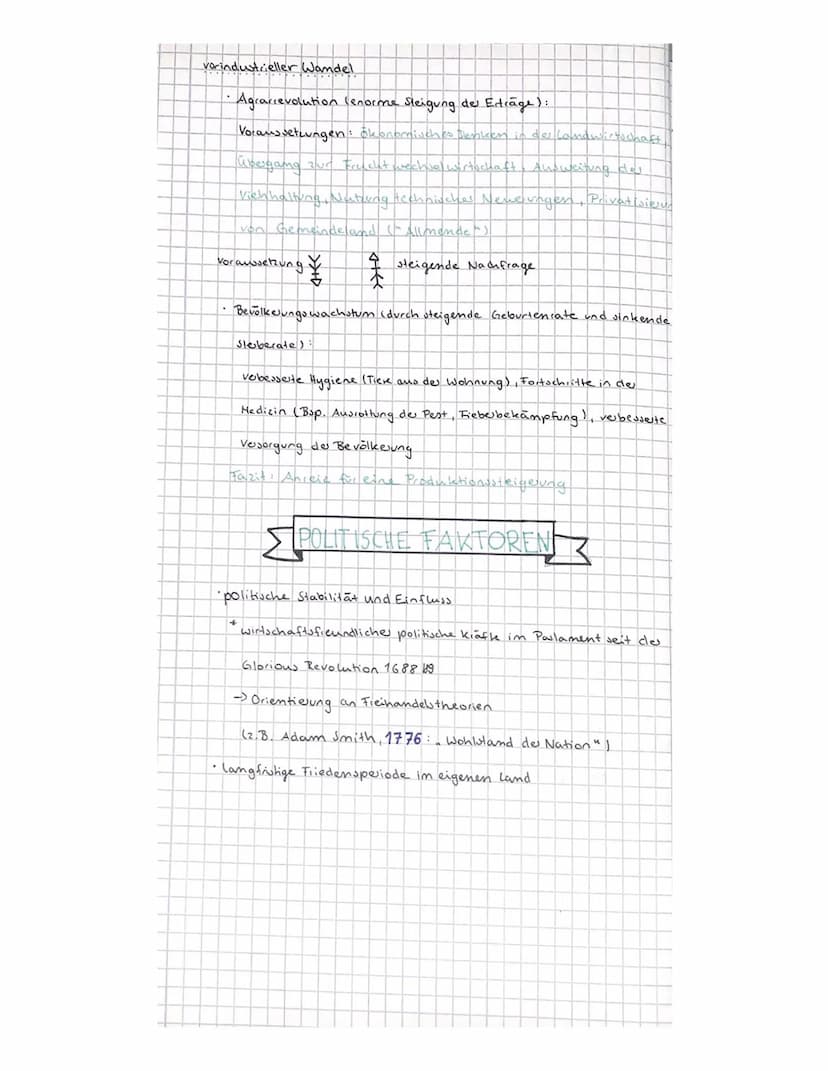 vorindustrieller Wandel
· Agrarrevolution (enorme Steigung der Erträge):
Voraussetzungen: Ökonomisches Denken in der Landwirtschaft,
Übergang zur Fruchtwechselwirtschaft, Ausweitung der
Viehhaltung, Nutzung technischer Neuerungen, Privatisierun
von Gemeindeland ("Allmende")
Voraussetzung steigende Nachfrage
· Bevölkerungswachstum (durch steigende Geburtenrate und sinkende
Sterberate):
verbesserte Hygiene (Tiere aus der Wohnung), Fortschritte in der
Medizin (Bsp. Ausrottung der Pest, Fieberbekämpfung), verbesserte
Versorgung der Bevölkerung
Fazit: Anreiz für eine Produktionssteigerung
POLITISCHE FAKTOREN
· politische Stabilität und Einfluss
+ wirtschaftsfreundliche politische Kräfte im Parlament seit der
Glorious Revolution 1688/89
-> Orientierung an Freihandelstheorien
(z.B. Adam Smith, 1776: „Wohlstand der Nation")
· langfristige Friedensperiode im eigenen Land